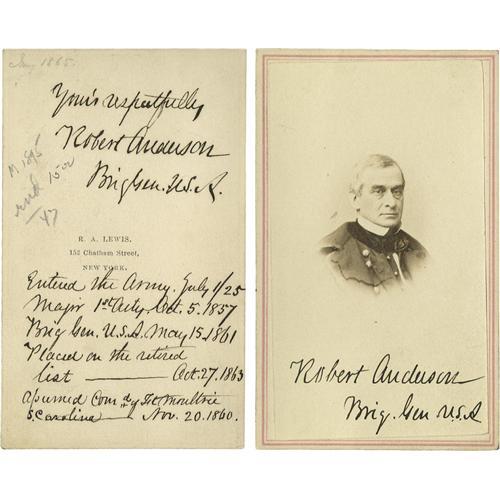 Aug 1865.
Your's respectfully
Robert Anderson
Brig Gen. U.S.A.
M 1895
1500
/47
R. A. LEWIS,
152 Chatham Street,
NEW YORK.
Entered the Army. July 1/25
Major 1st Arty. Oct. 5. 1857
Brig Gen. U.S.A. May 15. 1861
Placed on the retired
list ——— Oct. 27. 1863
assumed Comd of Ft Moultrie
S. Carolina — Nov. 20. 1860.
Robert Anderson
Brig. Gen U.S.A